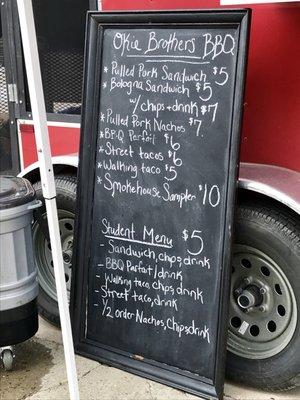 Okie Brothers BBQ
* Pulled Pork Sandwich $5
* Bologna Sandwich $5
w/ chips+drink $7
* Pulled Pork Nachos $7
* BBQ Parfait $6
* Street tacos $6
* Walking taco $5
* Smokehouse Sampler $10
Student Menu $5
- Sandwich, chips, drink
- BBQ Parfait/drink
- Walking taco, chips, drink
- Street taco, drink
- 1/2 order Nachos, Chips, drink